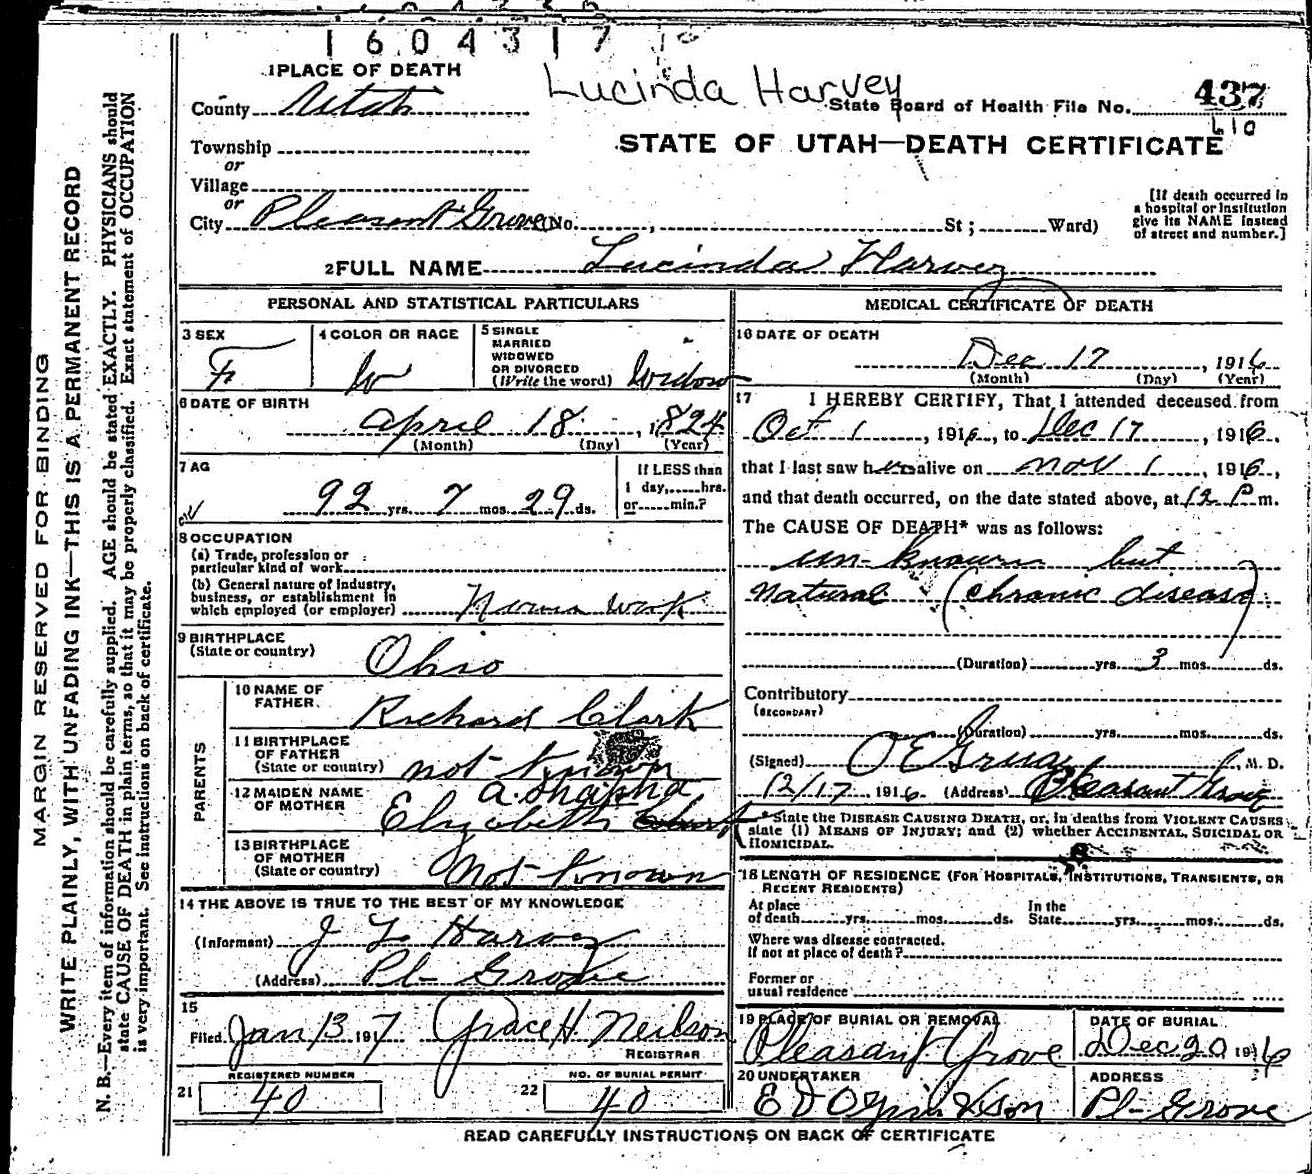 1604317
Lucinda Harvey
1 PLACE OF DEATH
County Utah
State Board of Health File No. 437
610
Township
or
Village
or
City Pleasant Grove (No. , St; Ward)
STATE OF UTAH—DEATH CERTIFICATE
[If death occurred in
a hospital or institution
give its NAME instead
of street and number.]
2 FULL NAME Lucinda Harvey
PERSONAL AND STATISTICAL PARTICULARS
3 SEX
F
4 COLOR OR RACE
W
5 SINGLE
MARRIED
WIDOWED
OR DIVORCED
(Write the word) Widow
6 DATE OF BIRTH
April 18, 1824
(Month) (Day) (Year)
7 AG
92 yrs. 7 mos. 29 ds.
If LESS than
1 day,.....hrs.
or.....min.?
8 OCCUPATION
(a) Trade, profession or
particular kind of work
(b) General nature of industry,
business, or establishment in
which employed (or employer) work
9 BIRTHPLACE
(State or country) Ohio
PARENTS
10 NAME OF
FATHER Richard Clark
11 BIRTHPLACE
OF FATHER
(State or country) not known
12 MAIDEN NAME
OF MOTHER
Elizabeth
13 BIRTHPLACE
OF MOTHER
(State or country) Not Known
14 THE ABOVE IS TRUE TO THE BEST OF MY KNOWLEDGE
(Informant) J L Harvey
(Address) Pl- Grove
15
Filed Jan 13 1917 Grace H. Neilson
REGISTRAR
REGISTERED NUMBER
21 40
NO. OF BURIAL PERMIT
22 40
MEDICAL CERTIFICATE OF DEATH
16 DATE OF DEATH
Dec 17, 1916
(Month) (Day) (Year)
17 I HEREBY CERTIFY, That I attended deceased from
Oct 1, 1916, to Dec 17, 1916,
that I last saw her alive on Nov 1, 1916,
and that death occurred, on the date stated above, at 12 P m.
The CAUSE OF DEATH* was as follows:
un-known but
natural (chronic disease)
(Duration) yrs. 3 mos. ds.
Contributory
(SECONDARY)
(Duration) yrs. mos. ds.
(Signed) O E Grua, M. D.
12/17, 1916 (Address) Pleasant Grove
* State the DISEASE CAUSING DEATH, or, in deaths from VIOLENT CAUSES
state (1) MEANS OF INJURY; and (2) whether ACCIDENTAL, SUICIDAL OR
HOMICIDAL.
18 LENGTH OF RESIDENCE (FOR HOSPITALS, INSTITUTIONS, TRANSIENTS, OR
RECENT RESIDENTS)
At place In the
of death yrs. mos. ds. State yrs. mos. ds.
Where was disease contracted.
If not at place of death?
Former or
usual residence
19 PLACE OF BURIAL OR REMOVAL
Pleasant Grove
DATE OF BURIAL
Dec 20 1916
20 UNDERTAKER
ADDRESS
Pl- Grove
READ CAREFULLY INSTRUCTIONS ON BACK OF CERTIFICATE
MARGIN RESERVED FOR BINDING
WRITE PLAINLY, WITH UNFADING INK—THIS IS A PERMANENT RECORD
N. B.—Every item of information should be carefully supplied. AGE should be stated EXACTLY. PHYSICIANS should
state CAUSE OF DEATH in plain terms, so that it may be properly classified. Exact statement of OCCUPATION
is very important. See instructions on back of certificate.